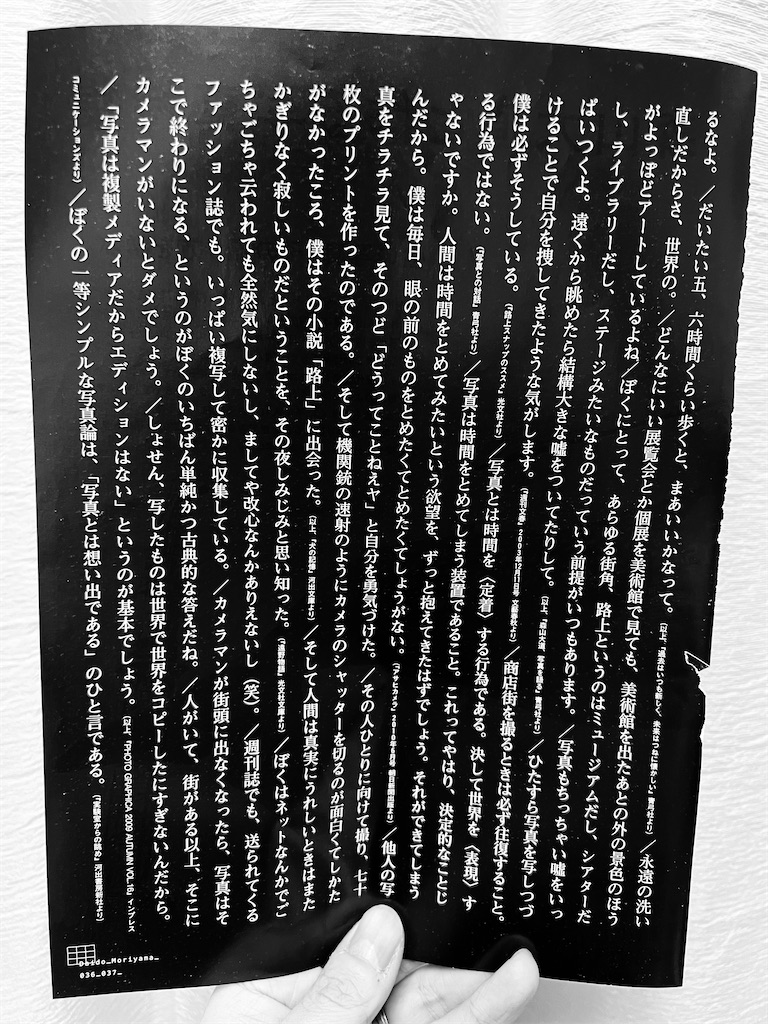 るなよ。／だいたい五、六時間くらい歩くと、まあいいかなって。（以上、『過去はいつも新しく、未来はつねに懐かしい』青弓社より）／永遠の洗い
直しだからさ、世界の。／どんなにいい展覧会とか個展を美術館で見ても、美術館を出たあとの外の景色のほう
がよっぽどアートしているよね／ぼくにとって、あらゆる街角、路上というのはミュージアムだし、シアターだ
し、ライブラリーだし、ステージみたいなものだっていう前提がいつもあります。／写真もちっちゃい嘘をいっ
ぱいつくよ。遠くから眺めたら結構大きな嘘をついてたりして。（以上、『森山大道、写真を語る』青弓社より）／ひたすら写真を写しつづ
けることで自分を捜してきたような気がします。（『週刊文春』2003年12月11日号 文藝春秋より）／商店街を撮るときは必ず往復すること。
僕は必ずそうしている。（『路上スナップのススメ』光文社より）／写真とは時間を〈定着〉する行為である。決して世界を〈表現〉す
る行為ではない。（『写真との対話』青弓社より）／写真は時間をとめてしまう装置であること。これってやはり、決定的なことじ
ゃないですか。人間は時間をとめてみたいという欲望を、ずっと抱えてきたはずでしょう。それができてしまう
んだから。僕は毎日、眼の前のものをとめたくてとめたくてしょうがない。（『アサヒカメラ』朝日新聞出版より）／他人の写
真をチラチラ見て、そのつど「どうってことねえヤ」と自分を勇気づけた。／その人ひとりに向けて撮り、七十
枚のプリントを作ったのである。／そして機関銃の速射のようにカメラのシャッターを切るのが面白くてしかた
がなかったころ、僕はその小説「路上」に出会った。（以上、『犬の記憶』河出文庫より）／そして人間は真実にうれしいときはまた
かぎりなく寂しいものだということを、その夜しみじみと思い知った。（『遠野物語』光文社文庫より）／ぼくはネットなんかでご
ちゃごちゃ云われても全然気にしないし、ましてや改心なんかありえないし（笑）。／週刊誌でも、送られてくる
ファッション誌でも。いっぱい複写して密かに収集している。／カメラマンが街頭に出なくなったら、写真はそ
こで終わりになる、というのがぼくのいちばん単純かつ古典的な答えだね。／人がいて、街がある以上、そこに
カメラマンがいないとダメでしょう。／しょせん、写したものは世界で世界をコピーしたにすぎないんだから。
／「写真は複製メディアだからエディションはない」というのが基本でしょう。（以上、『PHOTO GRAPHICA 2009 AUTUMN VOL.16』インプレス
コミュニケーションズより）／ぼくの一等シンプルな写真論は、「写真とは想い出である」のひと言である。（『実験室からの眺め』河出書房新社より）
Daido_Moriyama_
036_037_